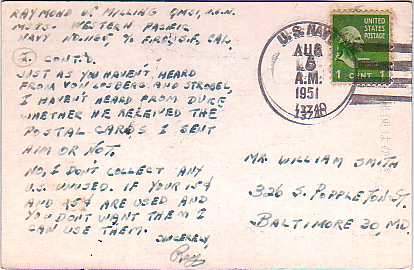 RAYMOND V. MILLING QMSI, U.S.N.
MSTS- WESTERN PACIFIC
NAVY NO. 1105 % FPO, S.F. CAL.
2. CONT'D.
JUST AS YOU HAVEN'T HEARD
FROM VON LOSBERG AND STROBEL,
I HAVEN'T HEARD FROM DUKE
WHETHER HE RECEIVED THE
POSTAL CARDS I SENT
HIM OR NOT.
NO, I DON'T COLLECT ANY
U.S. UNUSED. IF YOUR 15¢
AND 25¢ ARE USED AND
YOU DON'T WANT THEM I
CAN USE THEM.
SINCERELY,
Ray
U.S. NAVY
AUG
A.M.
1951
UNITED
STATES
POSTAGE
1 CENT 1
MR. WILLIAM SMITH
326 S. POPPLETON ST.
BALTIMORE 30, MD.